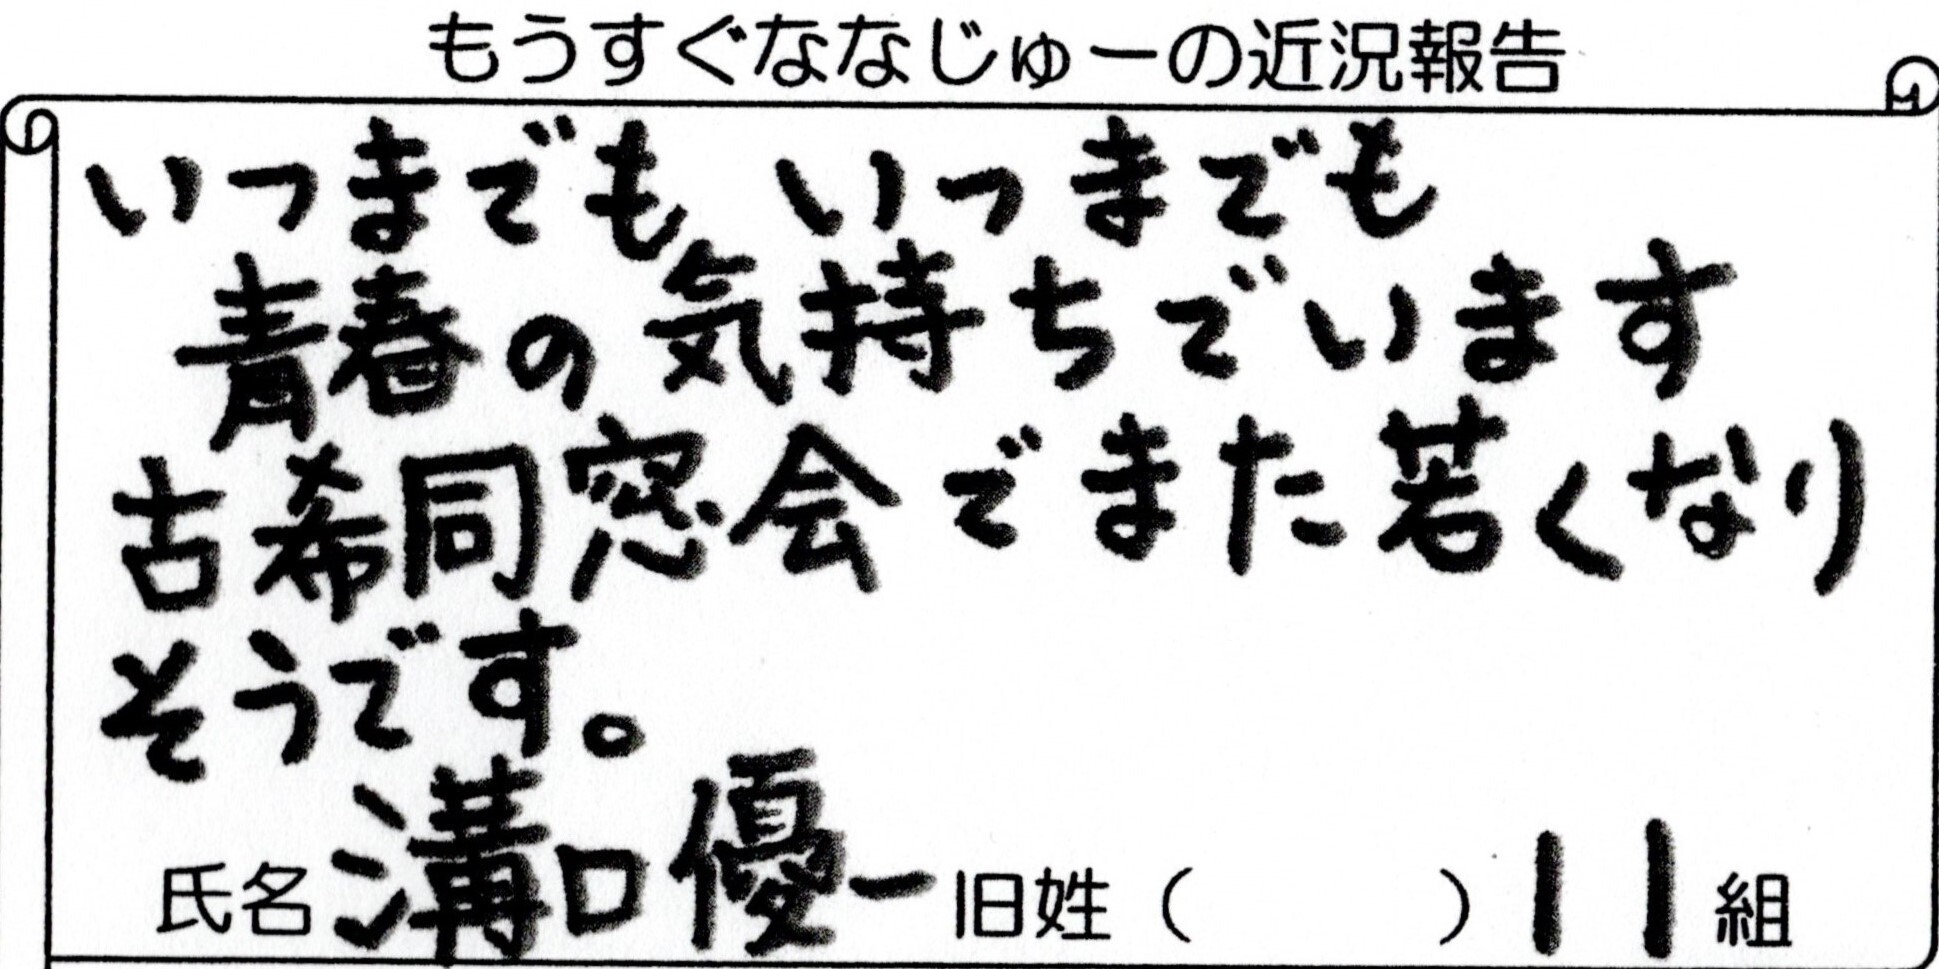 もうすぐななじゅーの近況報告
いつまでも いつまでも
青春の気持ちでいます
古希同窓会でまた若くなり
そうです。
氏名 溝口優一 旧姓（　　　）11組